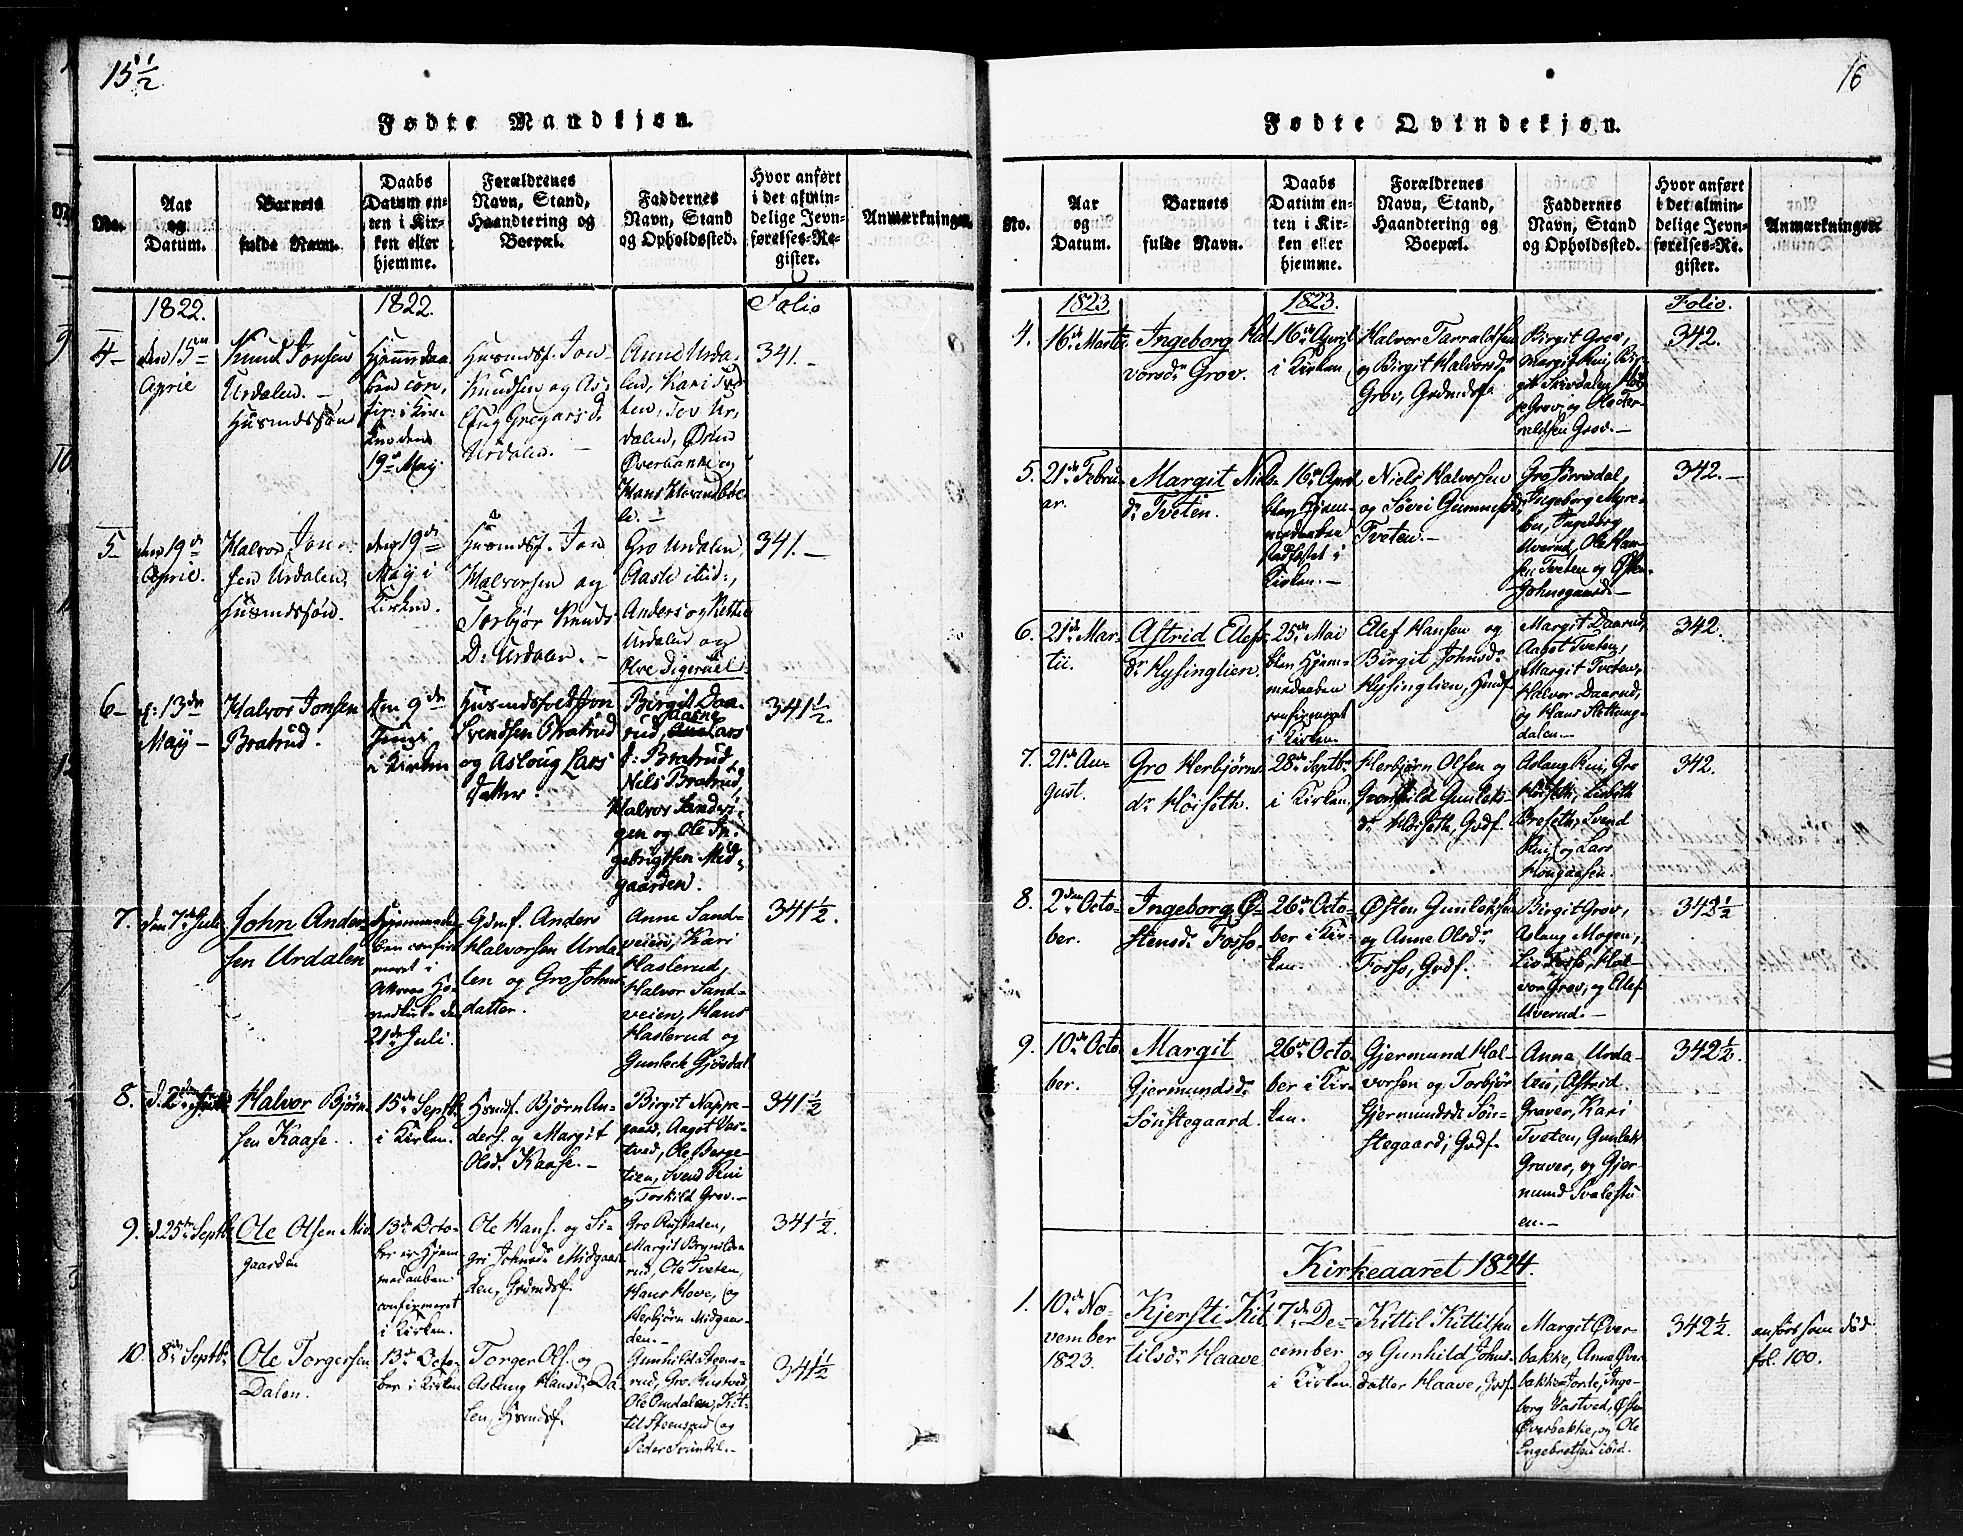 15 1/2
Fødte Mandkjøn.
No.
Aar
og
Datum.
Barnets
fulde Navn.
Daabs
Datum en-
ten i Kir-
ken eller
hjemme.
Forældrenes
Navn, Stand,
Haandtering og
Boepæl.
Faddernes
Navn, Stand
og Opholdssted.
Hvor anført
i det almin-
delige Jevn-
førelses-Re-
gister.
Anmærkninger.
1822.
1822.
Folio
4
den 15de
April
Knud Jonsen
Urdalen.
Husmdssøn
Hjemmdaa-
ben con-
fir: i Kir-
ken den
19de May
Husmdsf. Jon
Knudsen og As-
loug Gregarsd.
Urdalen.
Anne Urda-
len, Kari Tve-
ten, Tov Ur-
dalen, Øren
Øverbakke og
Hans
341.
5
den 19de
April.
Halvor Jon-
sen Urdalen,
Husmdssøn.
den 19de
May i
Kirken.
Husmdsf. Jon
Halvorsen og
Torbjør Knuds
D: Urdalen.
Gro Urdalen
Aasle ibid:,
Anders og Kittil
Urdalen og
Olve Digeruel
341.
6
d: 13de
May
Halvor Jonsen
Bratrud.
den 9de
Juni
i Kirken
Husmdsfolk Jon
Svendsen Bratrud
og Asloug Lars
datter.
Birgit Daa-
rud, Aasne Lars
d: Bratrud,
Nils Bratrud,
Halvor Sanden,
og Ole In-
gebrigtsen Mid-
gaarden.
341 1/2.
7.
den 7de Juli
John Ander-
sen Urdalen
Hjemmedaa-
ben confir
meret i
21de Juli.
Gdmf. Anders
Halvorsen Urda-
len og Gro Johns-
datter.
Anne Sand-
veien, Kari
Haslerud,
Halvor Sand-
veien, Hans
Haslerud og
Gunleck Gjøsdal
341 1/2.
8.
Halvor Bjørn-
sen Kaase.
15de Septb.
i Kirken.
Hsmdf. Bjørn An-
ders. og Margit
Olsd. Kaase.
Birgit Nappe-
gaard, Aagot Vas-
tved, Ole Berge-
tien, Svend Rui
og Torkild Grov.
341 1/2
9.
d. 25de Septb.
Ole Olsen Mid
gaarden
13de Octo-
ber er Hjem-
medaaben
confirmeret
i Kirken.
Ole Hans. og Si-
gri Johnsdr Midgaar-
den, Grdmdsf.
Gro Rustaden,
Margit Brynildsrud,
Ole Tveten,
Hans Hove, og
Herbjørn Midgaar-
den.
341 1/2.
10.
8de Septbr
Ole Torgersen
Dalen.
13de Octo-
ber i Kirken
Torger Ols. og
Aslaug Hansd. Da-
len, Hsmdsf.
Gunhild Steens-
rud, Gro Rustved
Ole Omdalen, Kit-
til Steensrud og
341 1/2
16
Fødte Qvindekjøn.
No.
Aar
og
Datum.
Barnets
fulde Navn.
Daabs
Datum en-
ten i Kir-
ken eller
hjemme.
Forældrenes
Navn, Stand,
Haandtering og
Boepæl.
Faddernes
Navn, Stand
og Opholdssted.
Hvor anført
i det almin-
delige Jevn-
førelses-Re-
gister.
Anmærkninger.
1823
1823.
Folio.
4.
16de Marti
Ingeborg Hal-
vorsdr Grov.
16de April
i Kirken
Halvor Tarraldsen
og Birgit Halvorsdr
Grov, Grdmdsf.
Birgit Grov,
Margit Rui, Bir-
git Skivdalen,
Grov, og
Grov.
342.
5.
21de Febru-
ar.
Margit Niels-
dr Tveten.
16de April
blev Hjem-
medaaben
stadfæstet i
Kirken.
Niels Halvorsen
og Søvei Gunnufsdr
Tveten.
Gro Jørnsdal,
Ingeborg Myre-
bøe, Ingeborg
Uverud, Ole Han-
sen Tveten og Østen
Johnsgaard.
342.
6.
21de Mar-
tii.
Astrid Ellefs-
dr Hysinglien.
25de Mai
blev Hjem-
medaaben
confirmeret
i Kirken.
Ellef Hansen og
Birgit Johnsdr
Hysinglien, Hmdf.
Margit Daarud,
Aagot Tveten,
Margit Tveten,
Halvor Daarud,
og Hans Slettung-
dalen.
342.
7.
21de Au-
gust.
Gro Herbjørns
dr Høiseth.
28de Septbr
i Kirken.
Herbjørn Olsen og
Gronhild Gunleks-
dr Høiseth, Gdf.
Aslaug Rui, Gro
Høiseth, Lisbeth
Broseth, Svend
Rui og Lars
Hougaasen.
342.
8.
2den Octo-
ber.
Ingeborg Ø-
stensdr Fosso.
26de Octo-
ber i Kir-
ken.
Østen Gunleksen
og Anne Olsdr
Fosso, Gdf.
Birgit Grov,
Aslaug Mogen,
Liv Fosso, Hal-
vor Grov, og Ellef
Uverud.
342 1/2
9.
10de Octo
ber.
Margit
Gjermundsdr
Sønstegaard.
26de Octo
ber i Kir-
ken.
Gjermund Hal-
vorsen og Torbjør
Gjermundsdr Søn-
stegaard, Gdf.
Anna Urda-
len, Astrid
Graver, Kari
Tveten, Gunlek
Graver, og Gjer-
mund Svalestu-
en.
342 1/2.
Kirkeaaret 1824.
1.
10de No-
vember
1823.
Kjersti Kit
tilsdr Haave
7de De-
cember
i Kirken.
Kittil Kittilsen
og Gunhild Johns-
datter Haave, Gdf.
Margit Øver-
bakke, Anne Øver
bakke Jorde, Inge-
borg Vastved, Østen
Øverbakke, og Ole
Engebretsen ibid.
342 1/2.
anført som død
fol. 100.